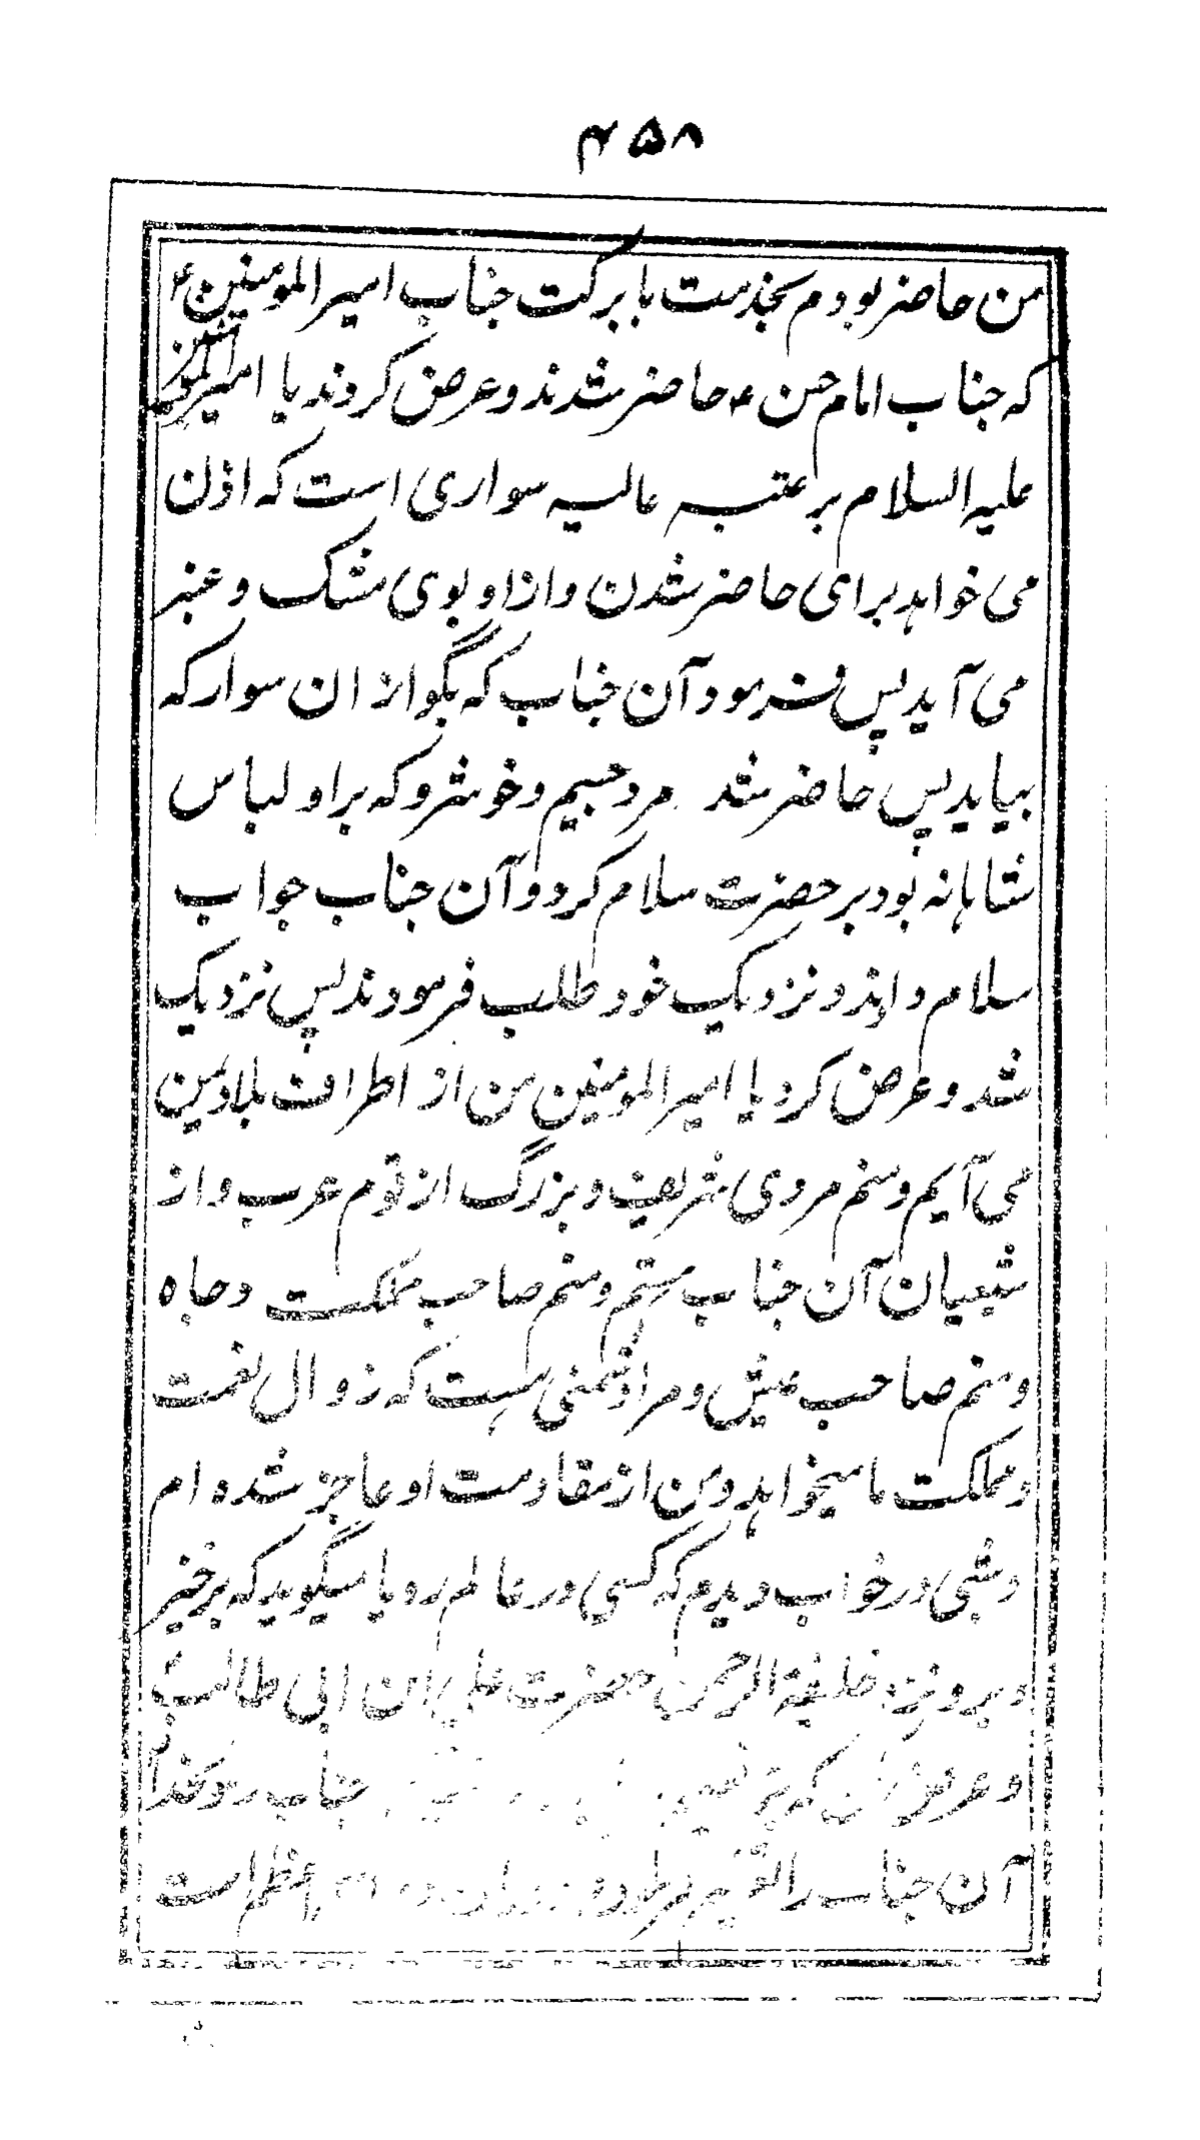 ۴۵۸
من حاضر بودم بخدمت با برکت جناب امیر المومنین ع
که جناب امام حسن ع حاضر شدند و عرض کردند یا امیر المومنین
علیه السلام بر عتبه عالیه سواری است که اذن
می خواهد برای حاضر شدن و از او بوی مشک و عنبر
می آید پس فرمود آن جناب که بگو از ان سوار که
بیاید پس حاضر شد مرد جسیم و خوشرو که بر او لباس
شاهانه بود بر حضرت سلام کرد و آن جناب جواب
سلام دادند و نزدیک خود طلب فرمودند پس نزدیک
شد و عرض کرد یا امیر المومنین من از اطراف بلاد یمن
می آیم و منم مردی شریف و بزرگ از قوم عرب و از
شیعیان آن جناب هستم و منم صاحب مملکت و جاه
و منم صاحب عیش و مرا دشمنی هست که زوال نعمت
و مملکت ما میخواهد و من از مقاومت او عاجز شده ام
و شبی در خواب دیدم که کسی در عالم رویا میگوید که برخیز
و برو نزد خلیفة الرحمن حضرت علی ابن ابی طالب ع
و عرض کن که جناب رسولخدا
آن جناب را